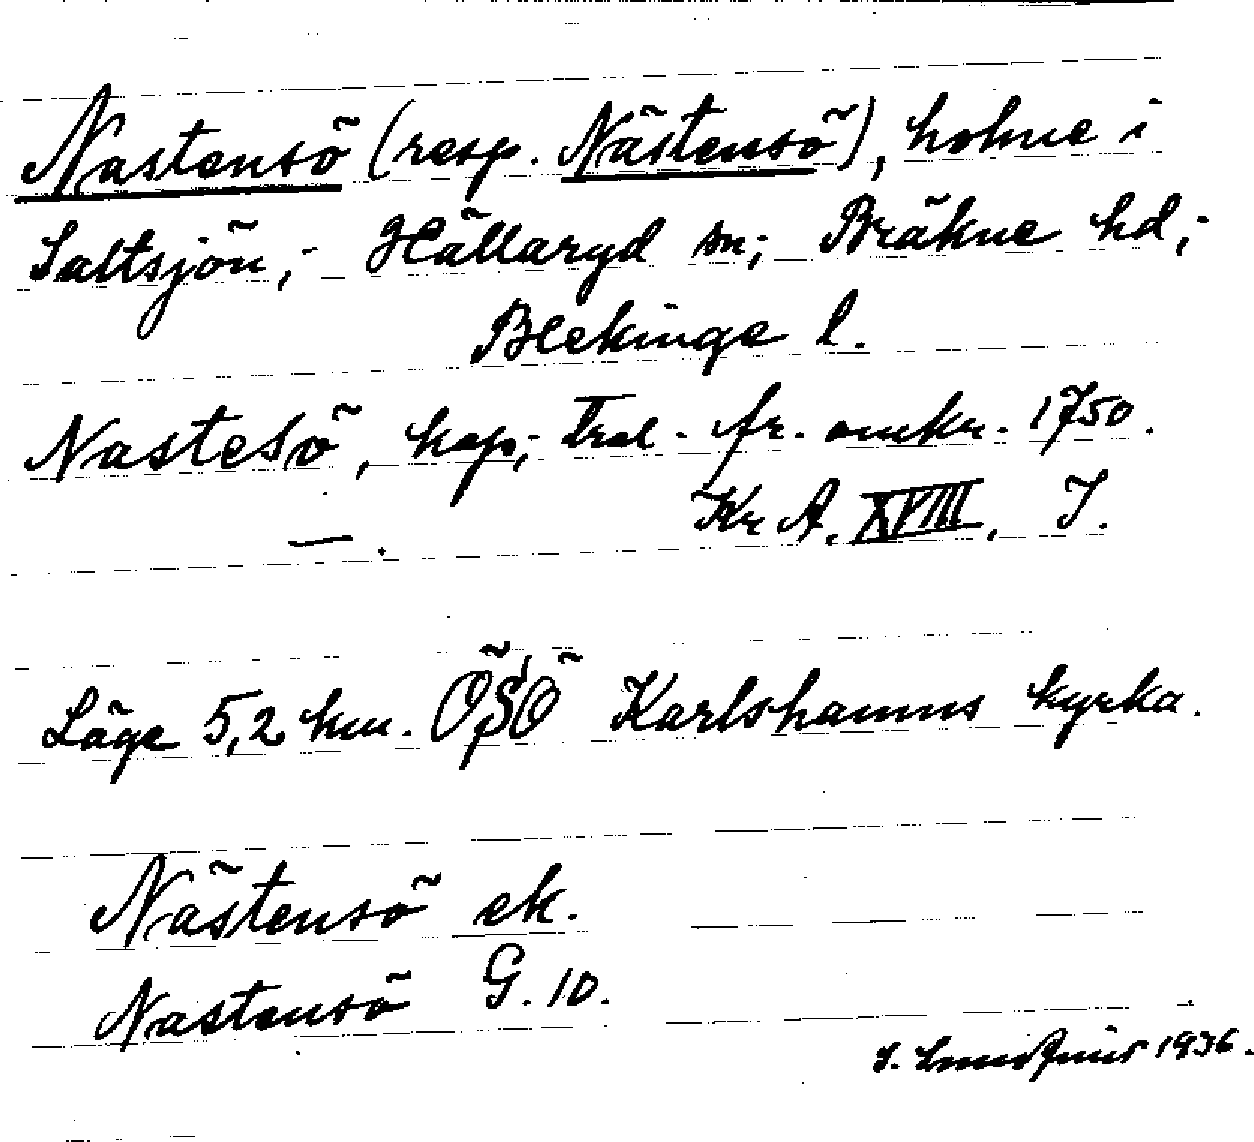 Nastensö (resp. Nästensö), holme i
Saltsjön, Hällaryd sn; Bräkne hd,
Blekinge l.
Nastesö, kop, fr. omkr. 1750.
Kr A. XVIII, I.
Läge 5,2 km. ÖSÖ Karlshamns kyrka.
Nästensö ek.
Nastensö G. 10.
1936.